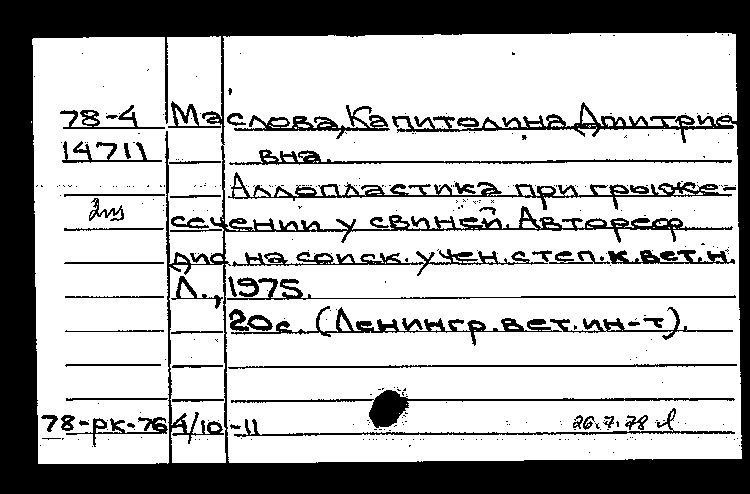 78-4 Маслова, Капитолина Дмитрие-
14711 вна.
Аллопластика при грыже-
сечении у свиней. Автореф.
дис. на соиск. учен. степ. к. вет. н.
Л., 1975.
20 с. (Ленингр. вет. ин-т).
78-рк-76 4/10-11 26.7.78